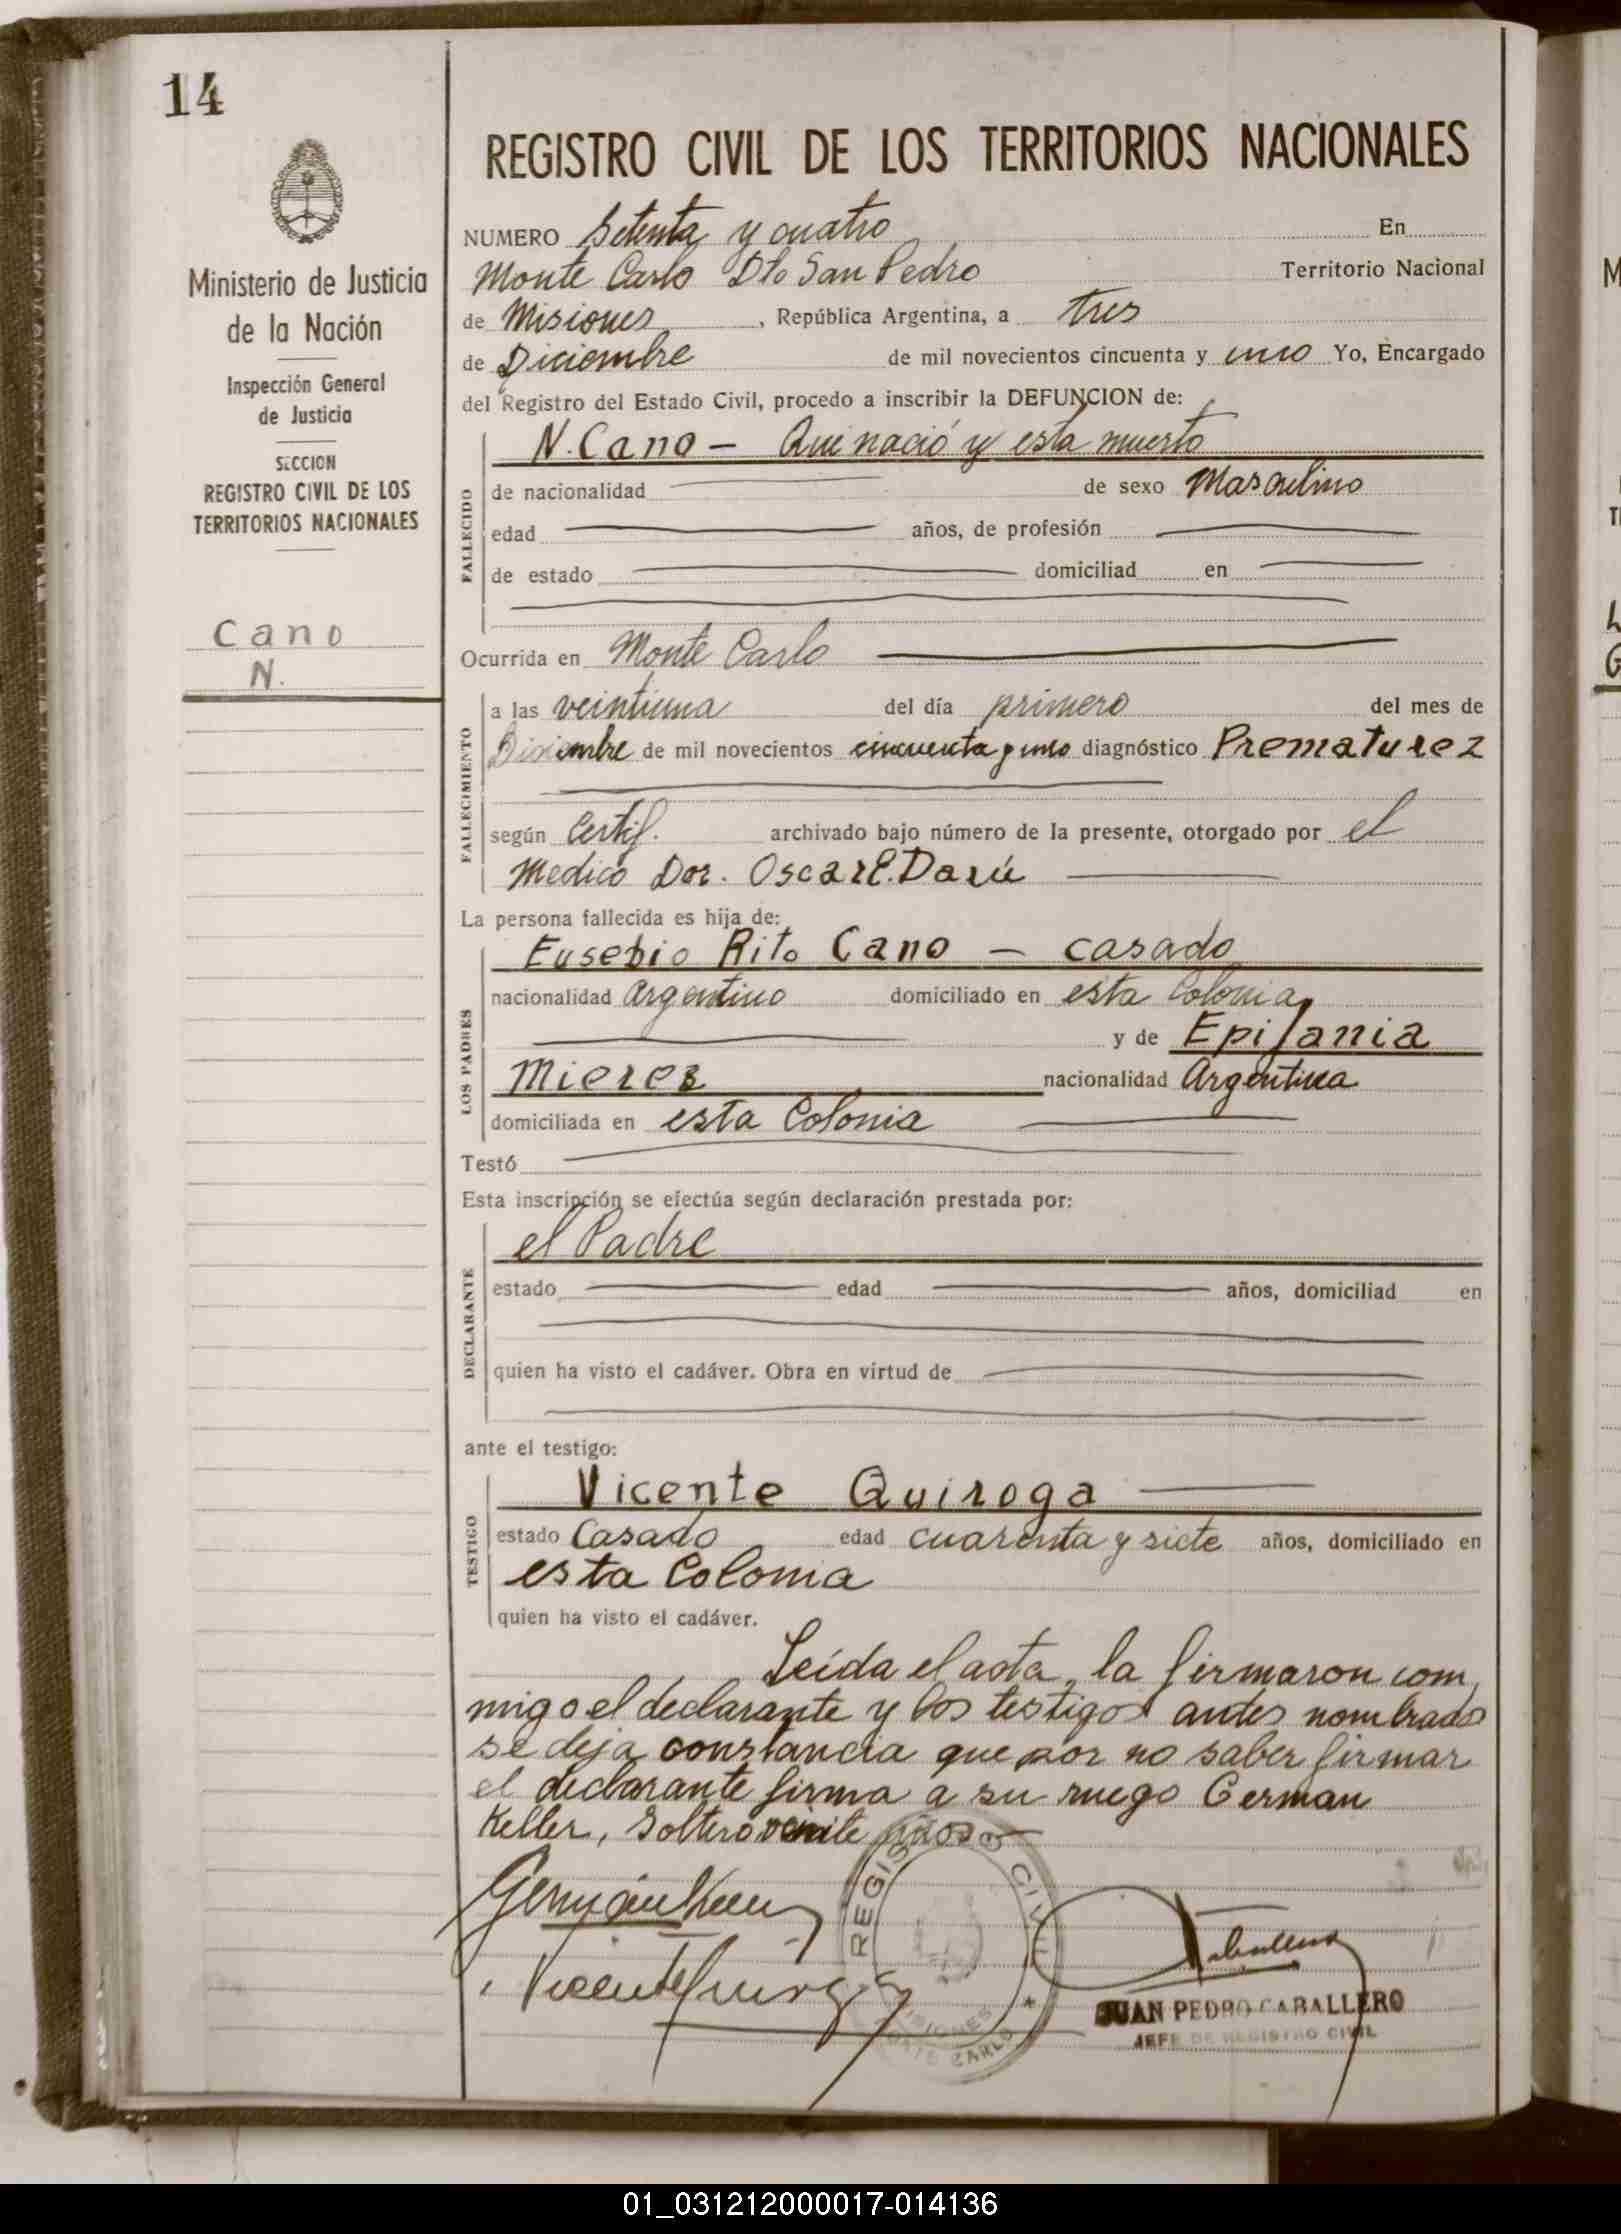 14
Ministerio de Justicia
de la Nación
Inspección General
de Justicia
SECCION
REGISTRO CIVIL DE LOS
TERRITORIOS NACIONALES
Cano
N.
REGISTRO CIVIL DE LOS TERRITORIOS NACIONALES
NUMERO Setenta y cuatro En
Monte Carlo Dto San Pedro Territorio Nacional
de Misiones, República Argentina, a tres
de Diciembre de mil novecientos cincuenta y uno Yo, Encargado
del Registro del Estado Civil, procedo a inscribir la DEFUNCION de:
N. Cano – Que nació y está muerto
FALLECIDO
de nacionalidad de sexo Masculino
edad años, de profesión
de estado domiciliad en
Ocurrida en Monte Carlo
FALLECIMIENTO
a las veintiuna del día primero del mes de
Diciembre de mil novecientos cincuenta y uno diagnóstico Prematurez
según Certif. archivado bajo número de la presente, otorgado por el
Medico Dor. Oscar C. Darú
La persona fallecida es hija de:
LOS PADRES
Eusebio Rito Cano – casado
nacionalidad Argentino domiciliado en esta Colonia,
y de Epifania
Mieres nacionalidad Argentina
domiciliada en esta Colonia
Testó
Esta inscripción se efectúa según declaración prestada por:
DECLARANTE
el Padre
estado edad años, domiciliad en
quien ha visto el cadáver. Obra en virtud de
ante el testigo:
TESTIGO
Vicente Quiroga
estado Casado edad cuarenta y siete años, domiciliado en
esta Colonia
quien ha visto el cadáver.
Leída el acta, la firmaron com
migo el declarante y los testigos antes nombrados
se deja constancia que por no saber firmar
el declarante firma a su ruego German
Keller, Soltero veinte años
Vicente Quiroga
REGISTRO CIVIL
MISIONES
MONTE CARLO
JUAN PEDRO CABALLERO
JEFE DE REGISTRO CIVIL
01_031212000017-014136